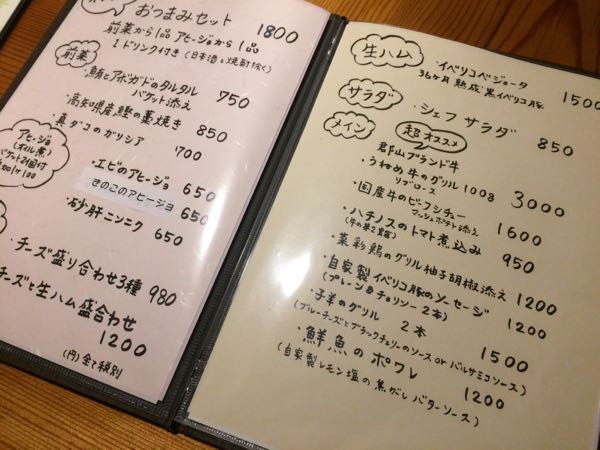 おつまみセット 1800
前菜から1品 アヒージョから1品
1ドリンク付き (日本酒と焼酎除く)
前菜
鮪とアボガドのタルタル 750
バケット添え
高知県産鰹の藁焼き 850
真ダコのガリシア 700
アヒージョ
(オイル煮)
バケット2個付
追加1ケ100
・エビのアヒージョ 650
きのこのアヒージョ 650
・砂肝ニンニク 650
チーズ盛り合わせ3種 980
チーズと生ハム盛合わせ
1200
(円)全て税別
生ハム
・イベリコベジョータ 1500
36ヶ月熟成 黒イベリコ豚
サラダ
シェフサラダ 850
メイン
超オススメ
郡山ブランド牛
・うねめ牛のグリル 100g 3000
リブロース
・国産牛のビーフシチュー 1600
マッシュポテト添え
・ハチノスのトマト煮込み 950
(牛の第2胃袋)
・菜彩鶏のグリル柚子胡椒添え 1200
・自家製イベリコ豚のソーセージ 1200
(プレーン&チョリソー 2本)
・子羊のグリル 2本 1500
(ブルーチーズとブラックチェリーのソース or バルサミコソース)
・鮮魚のポワレ 1200
(自家製レモン塩の焦がしバターソース)